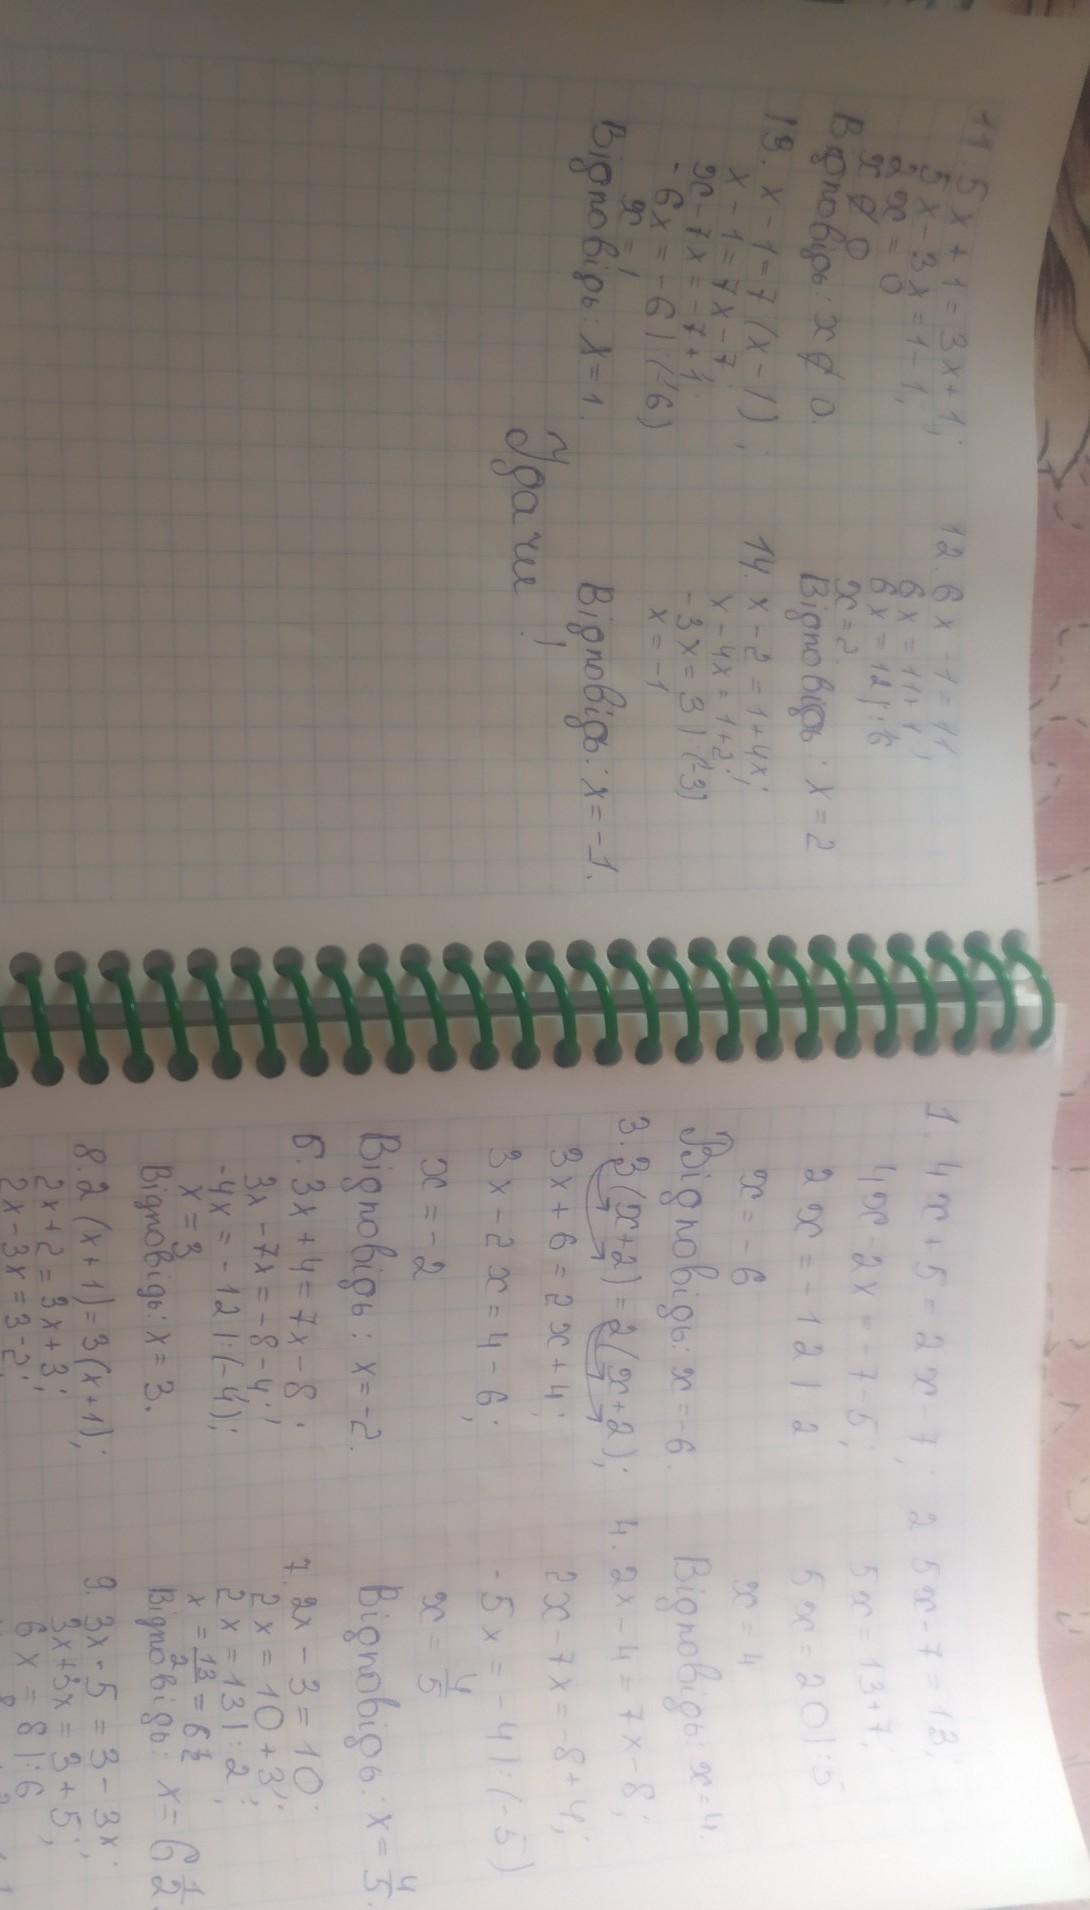 11. 5x+1=3x+1;
5x-3x=1-1,
2x=0
x∉0
Відповідь: x∉0.
12. 6x-1=11
6x=11+1,
6x=12|:6
x=2.
Відповідь: x=2
13. x-1=7(x-1),
x-1=7x-7;
x-7x=-7+1.
-6x=-6|:(-6)
x=1
Відповідь: x=1.
14. x-2=1+4x;
x-4x=1+2;
-3x=3|:(-3)
x=-1
Відповідь: x=-1.
Удачи!
1. 4x+5=2x-7;
4x-2x=-7-5;
2x=-12|2
x=-6
Відповідь: x=-6.
2 5x-7=13;
5x=13+7;
5x=20|:5
x=4
Відповідь: x=4.
3. 3(x+2)=2(x+2);
3x+6=2x+4;
3x-2x=4-6;
x=-2
Відповідь: x=-2.
4. 2x-4=7x-8;
2x-7x=-8+4;
-5x=-4|:(-5)
x=4/5
Відповідь: x=4/5.
6. 3x+4=7x-8;
3x-7x=-8-4;
-4x=-12|:(-4);
x=3
Відповідь: x=3.
7. 2x-3=10;
2x=10+3;
2x=13|:2;
x=13/2=6 1/2
Відповідь: x=6 1/2.
8. 2(x+1)=3(x+1);
2x+2=3x+3;
2x-3x=3-2;
9. 3x-5=3-3x;
3x+3x=3+5;
6x=8|:6